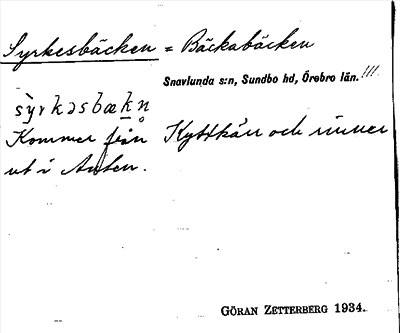 Syrkesbäcken = Bäckabäcken
Snavlunda s:n, Sundbo hd, Örebro län. !!!
sỳrkəsbækn̥
Kommer från Kyttkärr och rinner
ut i Anten.
GÖRAN ZETTERBERG 1934.